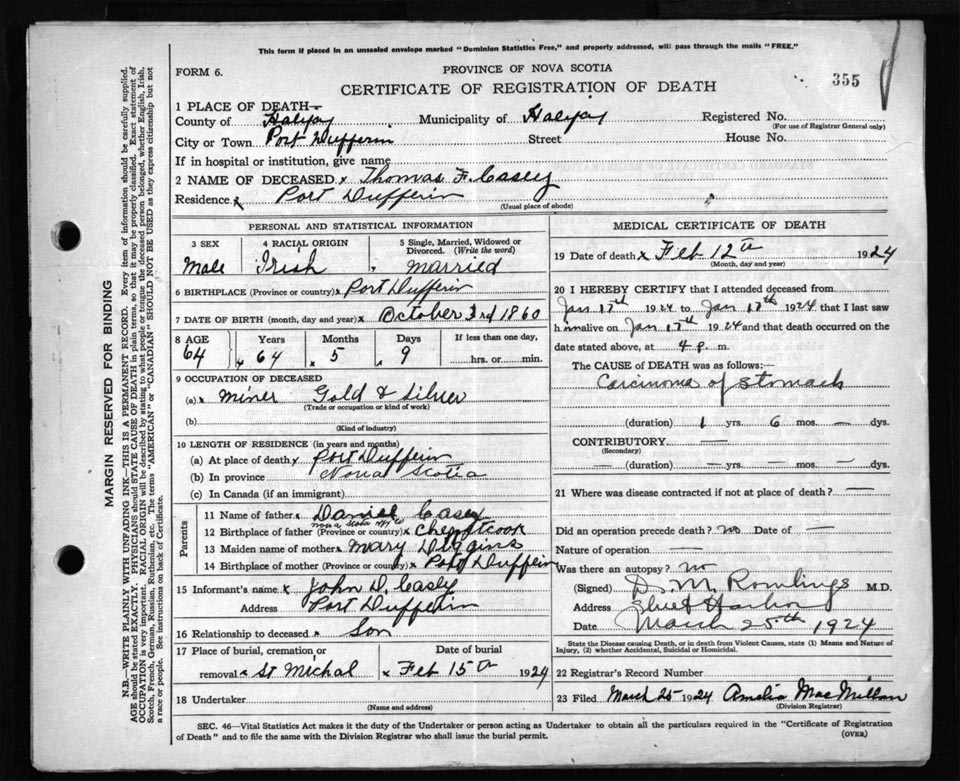 This form if placed in an unsealed envelope marked "Dominion Statistics Free," and properly addressed, will pass through the mails "FREE."
FORM 6.
PROVINCE OF NOVA SCOTIA
355
CERTIFICATE OF REGISTRATION OF DEATH
1 PLACE OF DEATH—
County of Halifax Municipality of Halifax Registered No.
(For use of Registrar General only)
City or Town Port Dufferin Street House No.
If in hospital or institution, give name
2 NAME OF DECEASED x Thomas F. Casey
Residence x Port Dufferin
(Usual place of abode)
PERSONAL AND STATISTICAL INFORMATION
3 SEX 4 RACIAL ORIGIN 5 Single, Married, Widowed or Divorced. (Write the word)
Male Irish married
6 BIRTHPLACE (Province or country) x Port Dufferin
7 DATE OF BIRTH (month, day and year) x October 3rd 1860
8 AGE Years Months Days If less than one day,
64 64 5 9 hrs. or min.
9 OCCUPATION OF DECEASED
(a) x miner Gold & Silver
(Trade or occupation or kind of work)
(b)
(Kind of industry)
10 LENGTH OF RESIDENCE (in years and months)
(a) At place of death x Port Dufferin
(b) In province Nova Scotia
(c) In Canada (if an immigrant)
Parents
11 Name of father x Daniel Casey
Nova Scotia
12 Birthplace of father (Province or country) x
13 Maiden name of mother x Mary Diggins
14 Birthplace of mother (Province or country) x Port Dufferin
15 Informant's name x John D. Casey
Address Port Dufferin
16 Relationship to deceased x Son
17 Place of burial, cremation or Date of burial
removal x St Michal x Feb 15th 1924
18 Undertaker
(Name and address)
MEDICAL CERTIFICATE OF DEATH
19 Date of death x Feb 12th 1924
(Month, day and year)
20 I HEREBY CERTIFY that I attended deceased from
Jan 17th 1924 to Jan 17th 1924 that I last saw
him alive on Jan 17th 1924 and that death occurred on
date stated above, at 4 p. m.
The CAUSE OF DEATH was as follows:—
Carcinoma of stomach
(duration) 1 yrs. 6 mos. — dys.
CONTRIBUTORY —
(Secondary)
— (duration) — yrs. — mos. — dys.
21 Where was disease contracted if not at place of death? —
Did an operation precede death? no Date of —
Nature of operation —
Was there an autopsy? no
(Signed) D. M. Rowlings M.D.
Address Sheet Harbor
Date March 25th 1924
State the Disease causing Death, or in death from Violent Causes, state (1) Means and Nature of
Injury, (2) whether Accidental, Suicidal or Homicidal.
22 Registrar's Record Number
23 Filed March 25 1924 Amelia MacMillan
(Division Registrar)
SEC. 46—Vital Statistics Act makes it the duty of the Undertaker or person acting as Undertaker to obtain all the particulars required in the "Certificate of Registration
of Death" and to file the same with the Division Registrar who shall issue the burial permit.
(OVER)
MARGIN RESERVED FOR BINDING
N.B.—WRITE PLAINLY WITH UNFADING INK—THIS IS A PERMANENT RECORD. Every item of information should be carefully supplied.
AGE should be stated EXACTLY. PHYSICIANS should STATE CAUSE OF DEATH in plain terms, so that it may be properly classified. Exact statement of
OCCUPATION is very important. RACIAL ORIGIN will be described by stating to what people or tongue the deceased person belonged, whether English, Irish,
Scotch, French, German, Russian, Ruthenian, etc. The terms "AMERICAN" or "CANADIAN" SHOULD NOT BE USED as they express citizenship but not
a race or people. See instructions on back of Certificate.